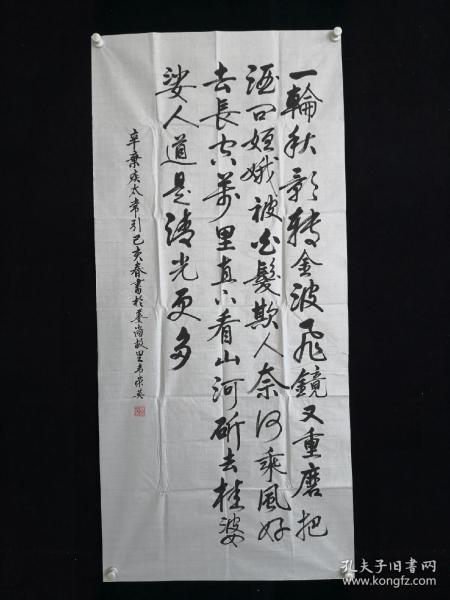 一輪秋影轉金波飛鏡又重磨把
酒問姮娥被白髮欺人奈何乘風好
去長空萬里直下看山河斫去桂婆
娑人道是清光更多
辛棄疾太常引己亥春書於姜尚故里
孔夫子旧书网
www.kongfz.com